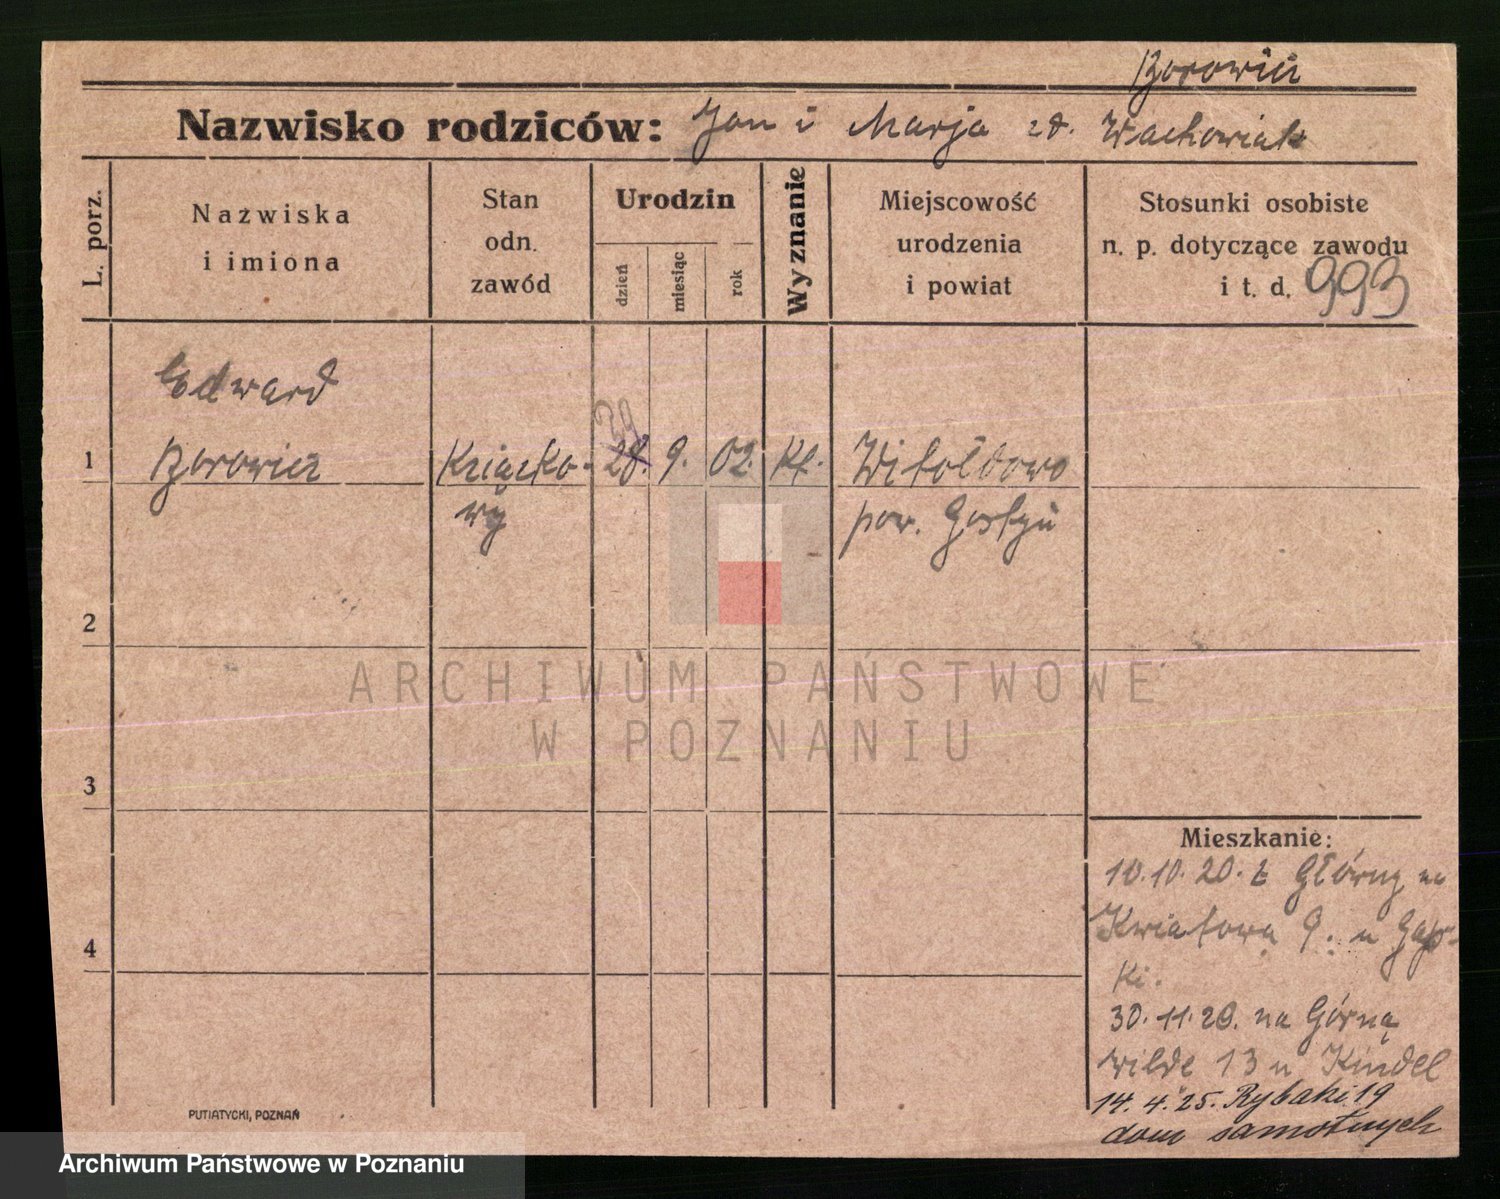 Borowicz
Nazwisko rodziców: Jan i Marja zd. Wachowiak
L. porz.
Nazwiska
i imiona
Stan
odn.
zawód
Urodzin
dzień
miesiąc
rok
Wyznanie
Miejscowość
urodzenia
i powiat
Stosunki osobiste
n. p. dotyczące zawodu
i t. d. 993
Edward
1 Borowicz Książko- 28. 9. 02. kt. Witoldowo
wy pow. Gostyń
2
ARCHIWUM PAŃSTWOWE
W POZNANIU
3
Mieszkanie:
10.10.20. z Główny na
4 Kwiatową 9. u
ki.
30.11.20. na Górną
Wildę 13 u Kindel
14. 4. 25. Rybaki 19
dom samotnych
PUTIATYCKI, POZNAŃ
Archiwum Państwowe w Poznaniu